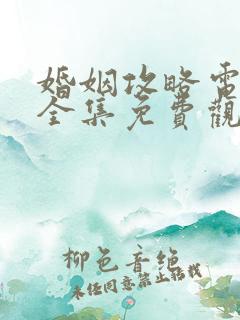 婚姻攻略電
全集免費觀
柳色音絶
未经同意禁止转载